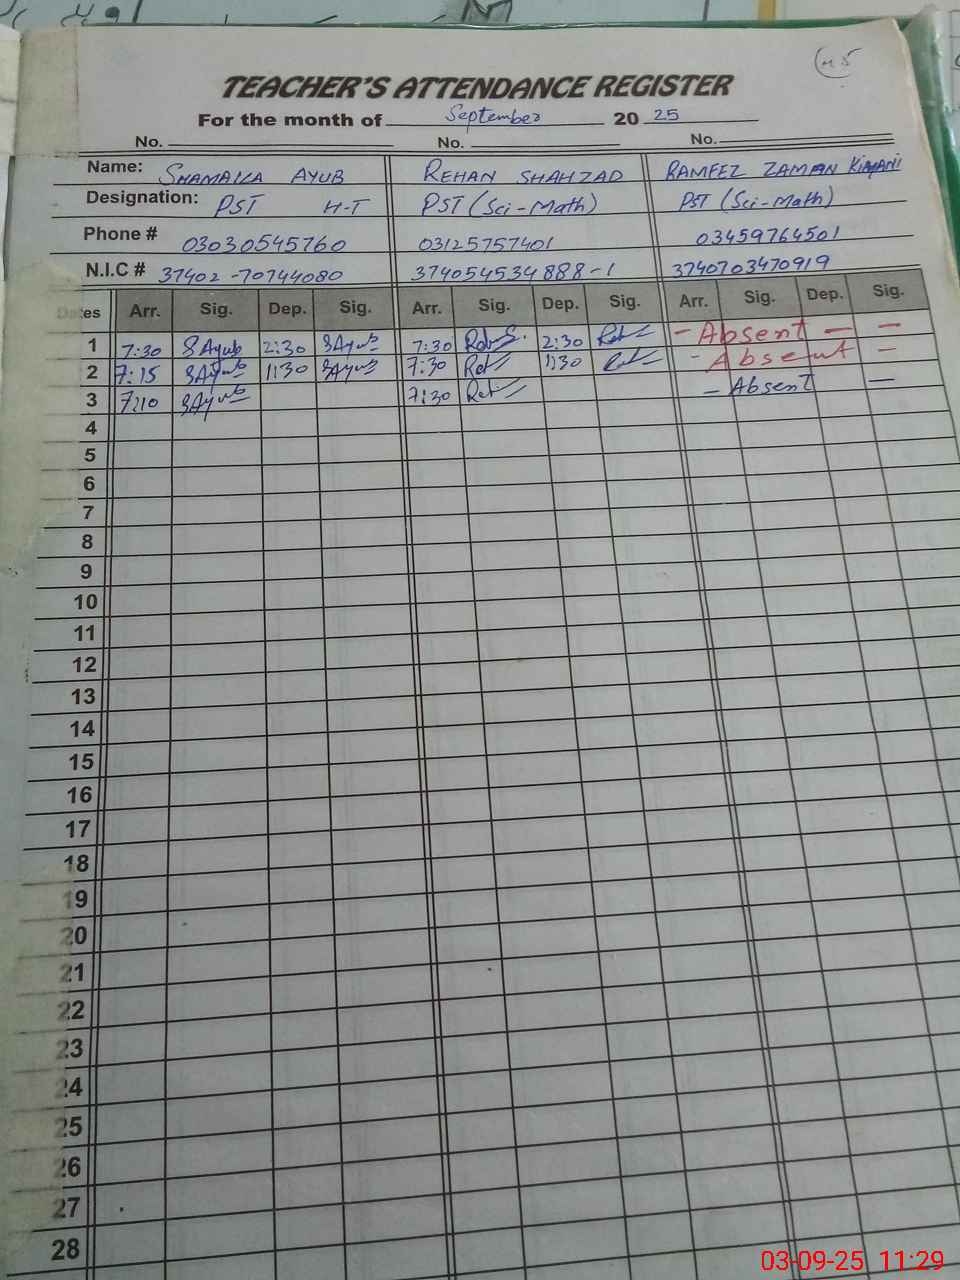 TEACHER'S ATTENDANCE REGISTER
For the month of September 20 25
No. No. No.
Name: SHAMAILA AYUB REHAN SHAHZAD RAMEEZ ZAMAN KIYANI
Designation: PST H-T PST (Sci-Math) PST (Sci-Math)
Phone # 03030545760 03125757401 03459764501
N.I.C # 37402-70744080 374054534888-1 3740703470919
Dates Arr. Sig. Dep. Sig. Arr. Sig. Dep. Sig. Arr. Sig. Dep. Sig.
1 7:30 SAyub 2:30 SAyub 7:30 2:30 - Absent - -
2 7:15 SAyub 1:30 SAyub 7:30 1:30 - Absent -
3 7:10 SAyub 7:30 - Absent -
4
5
6
7
8
9
10
11
12
13
14
15
16
17
18
19
20
21
22
23
24
25
26
27
28
03-09-25 11:29